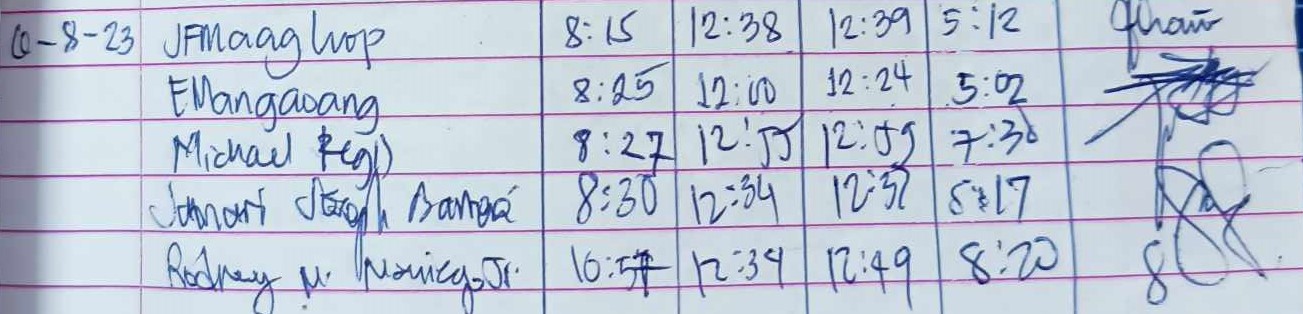 6-8-23 JFMaaghop 8:15 12:38 12:39 5:12
EMangaoang 8:25 12:00 12:24 5:02
Michael 8:27 12:55 12:59 7:30
8:30 12:34 12:37 5:17
Rodney M. Jr. 10:57 12:34 12:49 8:20